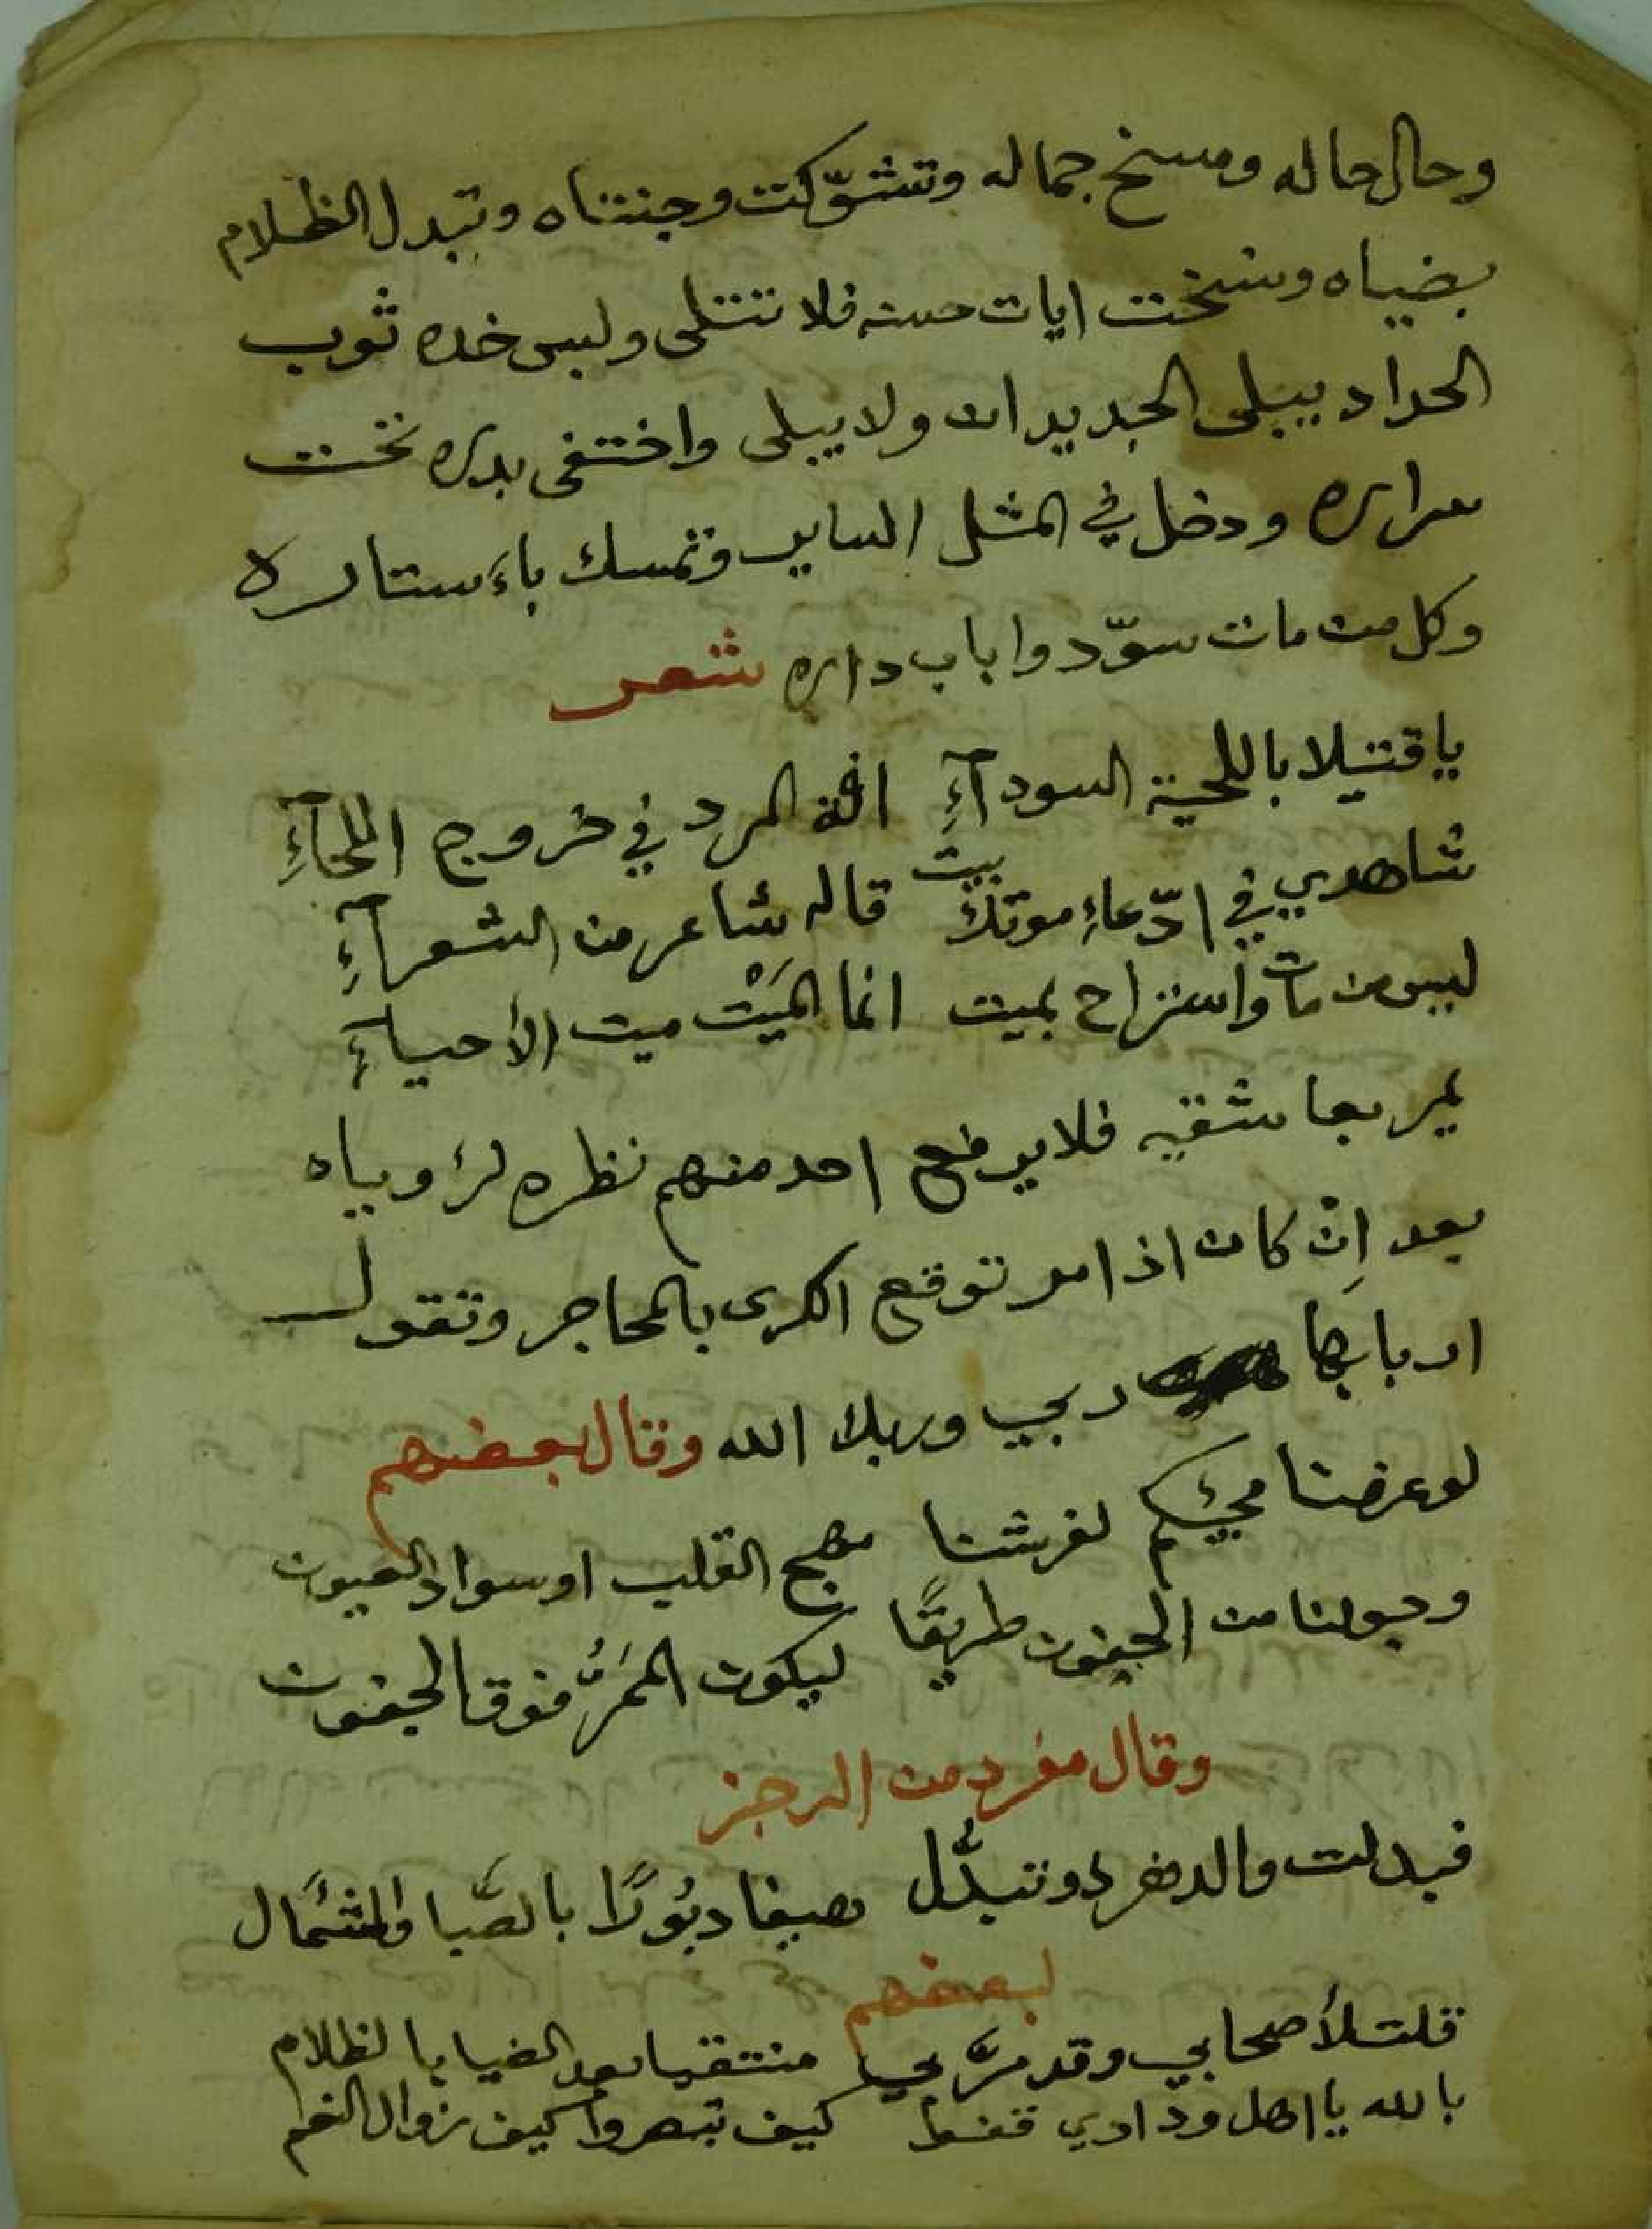 وحال حاله ومسخ جماله وتشوّكت وجنتاه وتبدل الظلام
بضياه ونسخت ايات حسنه فلا تتلى ولبس خده ثوب
الحداد يبلى الجديدان ولا يبلى واختفى بدره تحت
سراره ودخل في المثل الساير وتمسك باءستاره
وكل من مات سوّدوا باب داره شعر
يا قتيلا باللحية السودآءِ افة المرد في خروج اللحآءِ
شاهدي في ادّعاءِ موتك بيت قاله شاعر من الشعرآءِ
ليس من مات واستراح بميت انما المَيْت ميت الأحيآءِ
يمر بعاشقيه فلا يرفع احد منهم نظره لرؤياه
بعد اِن كان اذا مر توقع الكرى بالمحاجر وتقول
اربابها ربي وربك الله وقال بعضهم
لو عرفنا مجيئكم لفرشنا مهج القلب او سواد العيون
وجعلنا من الجفون طريقًا ليكون الممَرُّ فوق الجفون
وقال مفرد من الرجز
فبدلت والدهر ذو تبدُّل هيفا دبُورًا بالصَّبا والشمَال
لبعضهم
قلت لأصحابي وقد مرَّ بي منتقبا بعد الضيا بالظلام
بالله يا اهل ودادي قفوا كيف تبصروا كيف زوال النعم